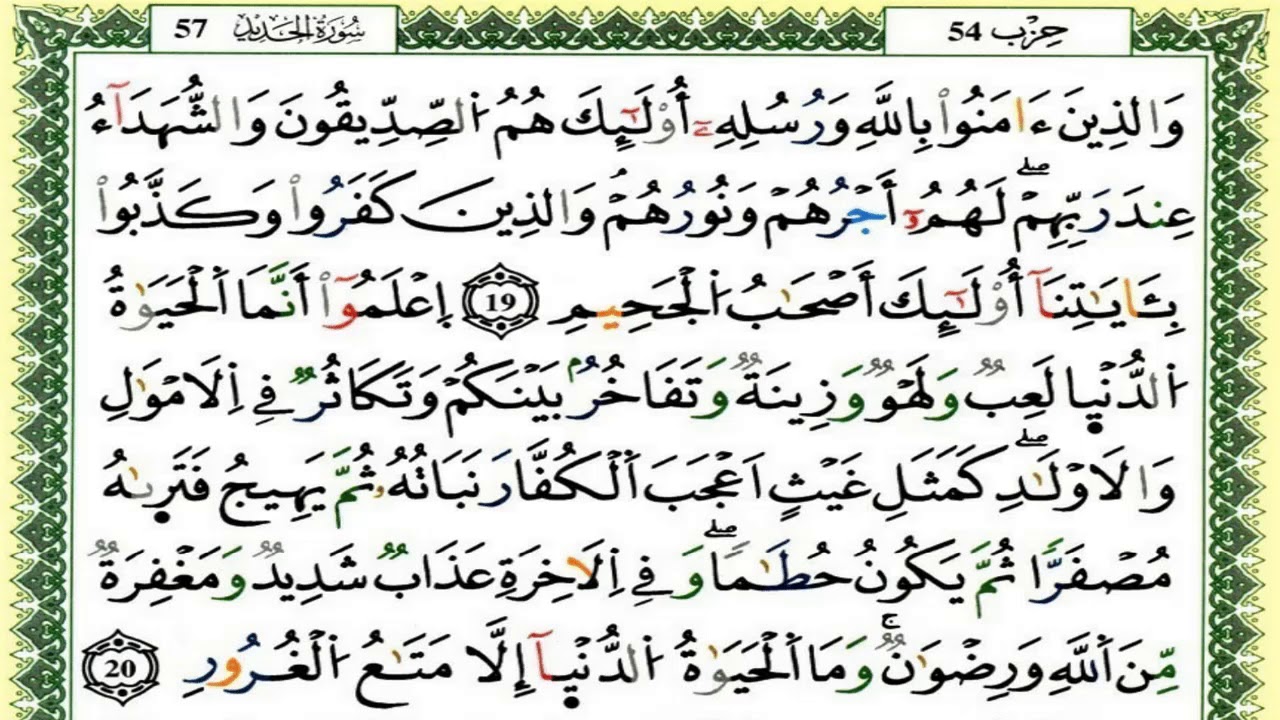 حِزْب 54
سُورَةُ الْحَدِيد 57
وَالذِينَ ءَامَنُواْ بِاللَّهِ وَرُسُلِهِۦٓ أُوْلَٰٓئِكَ هُمُ اُلصِّدِّيقُونَ وَالشُّهَدَآءُ
عِندَ رَبِّهِمْۖ لَهُمُۥٓ أَجْرُهُمْ وَنُورُهُمْۖ وَالذِينَ كَفَرُواْ وَكَذَّبُواْ
بِـَٔايَٰتِنَآ أُوْلَٰٓئِكَ أَصْحَٰبُ اُلْجَحِيمِ 19 اِعْلَمُوٓاْ أَنَّمَا اَلْحَيَوٰةُ
اُلدُّنْي۪ا لَعِبٌ وَلَهْوٌ وَزِينَةٌ وَتَفَاخُرُۢ بَيْنَكُمْ وَتَكَاثُرٌ فِي اِلَامْوَٰلِ
وَالَاوْلَٰدِۖ كَمَثَلِ غَيْثٍ اَعْجَبَ اَلْكُفَّارَ نَبَاتُهُۥ ثُمَّ يَهِيجُ فَتَر۪يٰهُ
مُصْفَرّاً ثُمَّ يَكُونُ حُطَٰماًۖ وَفِي اِلَاخِرَةِ عَذَابٌ شَدِيدٌ وَمَغْفِرَةٌ
مِّنَ اَللَّهِ وَرِضْوَٰنٌۚ وَمَا اَلْحَيَوٰةُ اُلدُّنْي۪آ إِلَّا مَتَٰعُ اُلْغُرُورِ 20